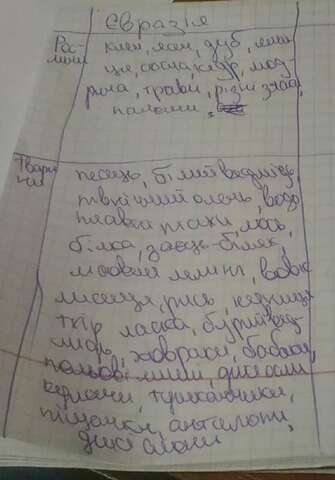 Євразія
Рос-
лини
клен, ясен, дуб, ялин
ця, сосна, кедр, мод
рина, трави, різні злаки,
пальми,
Твари
ни
песець, білий ведмідь,
північний олень, водо
плавні птахи, лось,
білка, заєць-біляк,
лісовий лемінг, вовк
лисиця, рись,
тхір ласка, бурий вед-
мідь, ховрахи, бабаки,
польові миші, дикі осли
тушканчики,
піщанки, антилопи,
дикі слони